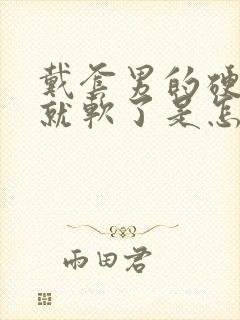 戴套男的硬
就软了是怎
雨田君